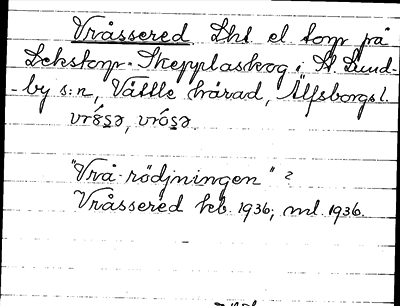 Vråssered Lht el torp på
Lekstorp-Skepplaskog i St Lund-
-by s:n, Vättle härad, Älfsborgs l.
"Vrå-rödjningen" ?
Vråssered heb. 1936; ml. 1936.